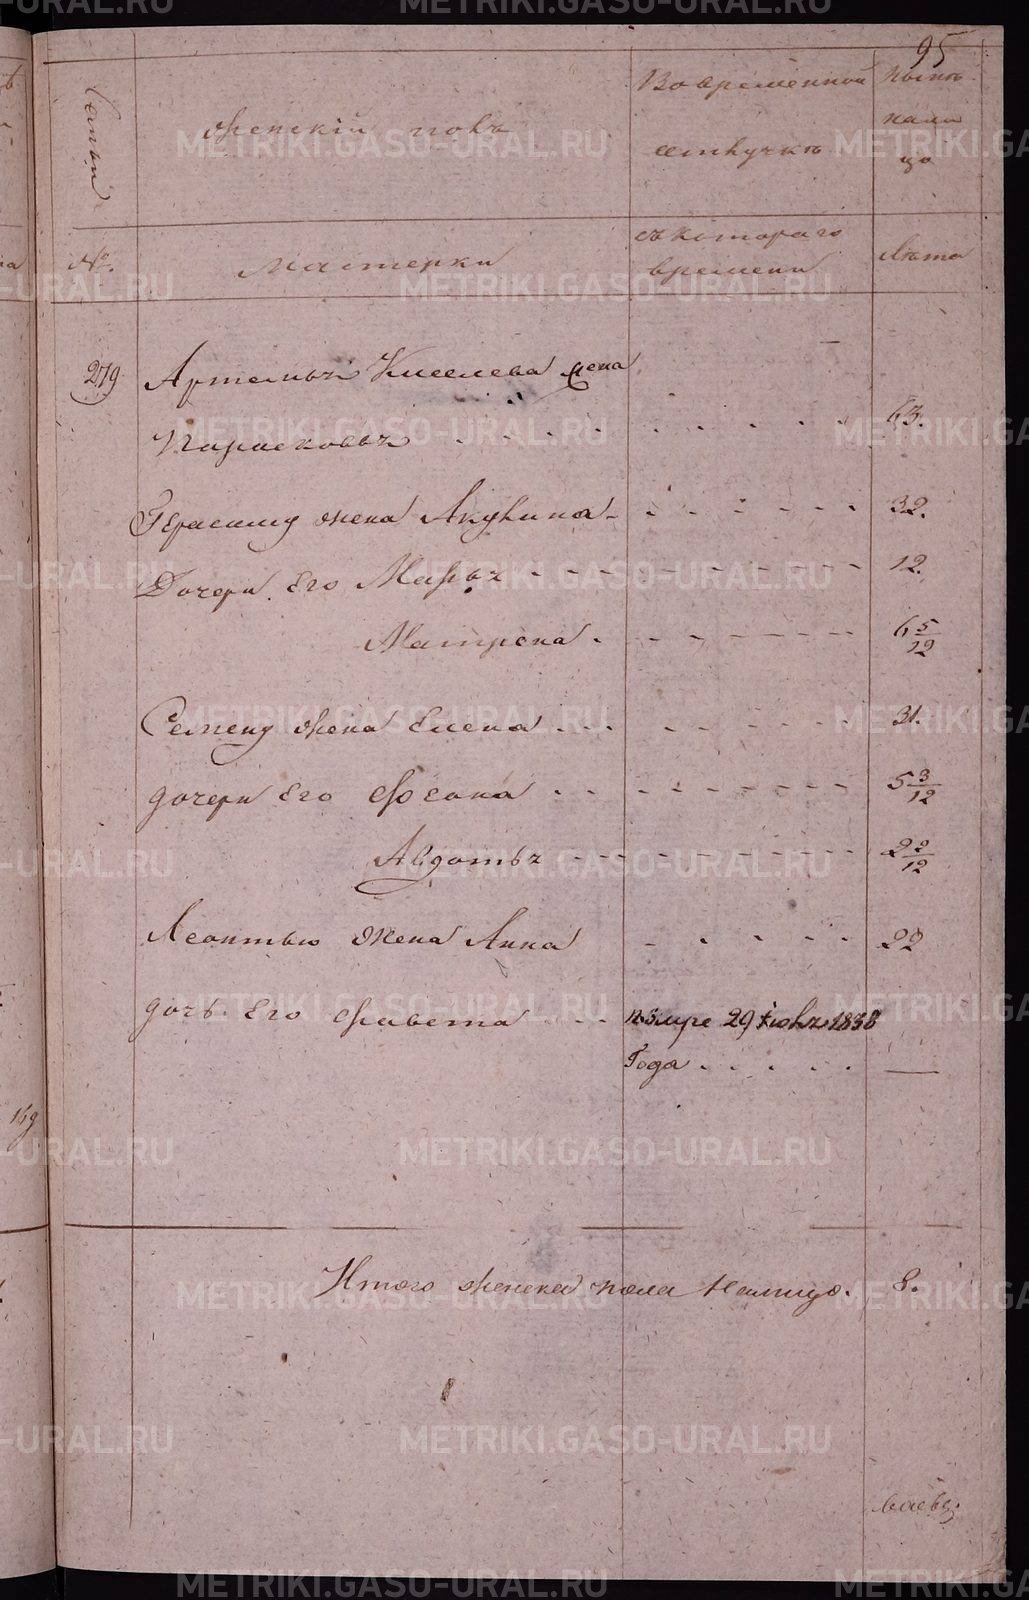 METRIKI.GASO-URAL.RU
95
Семьи
Женскій полъ
Во временной
отлучкѣ
Нынѣ
нали
цо
№.
Мастерки
съ котораго
времени
Лѣта
279
Артемья Киселева жена
Парасковья . . . . . . . . . 63.
Герасиму жена Акулина - - - - - - 32.
Дочери Его Марья - - - - - - - - 12.
Матрена . - - - - - - 6 5/12
Семену жена Елена . . . - - - - 31.
дочери Его Фоеана . . - - - - - - 5 3/12
Авдотья - - - - - - - - 2 2/12
Леонтью жена Анна - - - - - 22
дочь Его Фавета - - - помре 29 Іюля 1838
Года . . . . . —
169
Итого женска пола Налицо. 8.